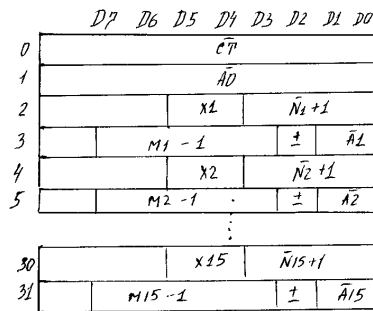 D7 D6 D5 D4 D3 D2 D1 D0
0 C̄T̄
1 ĀŌ
2 X1 N̄1+1
3 M1-1 ± Ā1
4 X2 N̄2+1
5 M2-1 ± Ā2
30 X15 N̄15+1
31 M15-1 ± Ā15